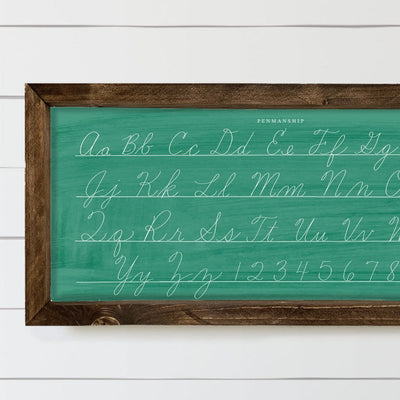 PENMANSHIP
Aa Bb Cc Dd Ee Ff Gg
Jj Kk Ll Mm Nn O
Qq Rr Ss Tt Uu Vv
Yy Zz 1 2 3 4 5 6 7 8